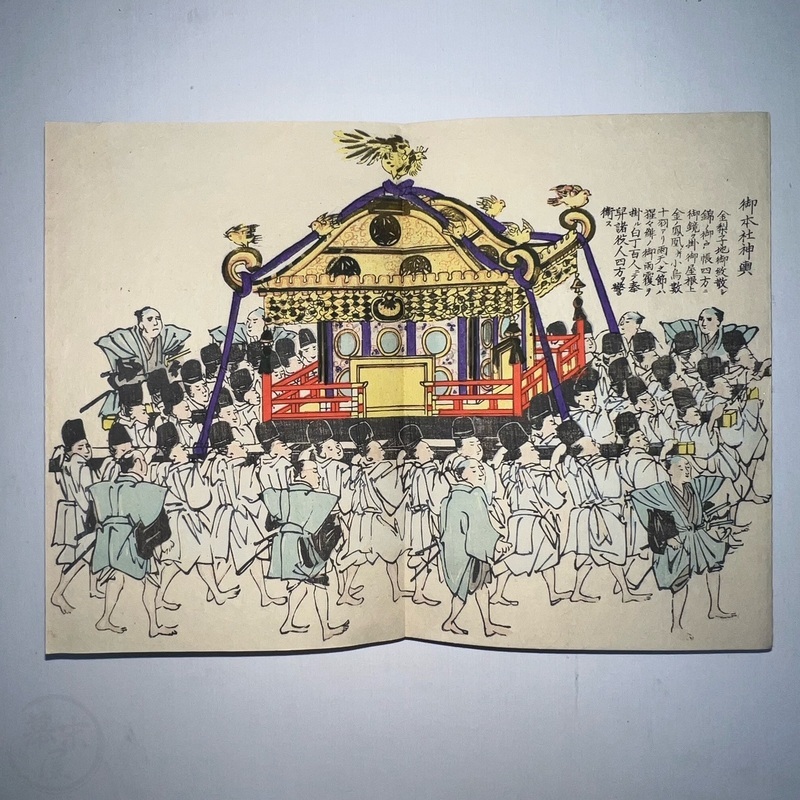 御本社神輿
金梨子地御紋散シ
錦ノ御戸帳四方ニ
御鏡ヲ掛御屋根上
金鳳凰并小鳥数
十羽アリ雨天之節ハ
猩々緋ノ御雨覆ヲ
掛ル白丁百人ニテ奉
舁諸役人四方ヲ警
衛ス